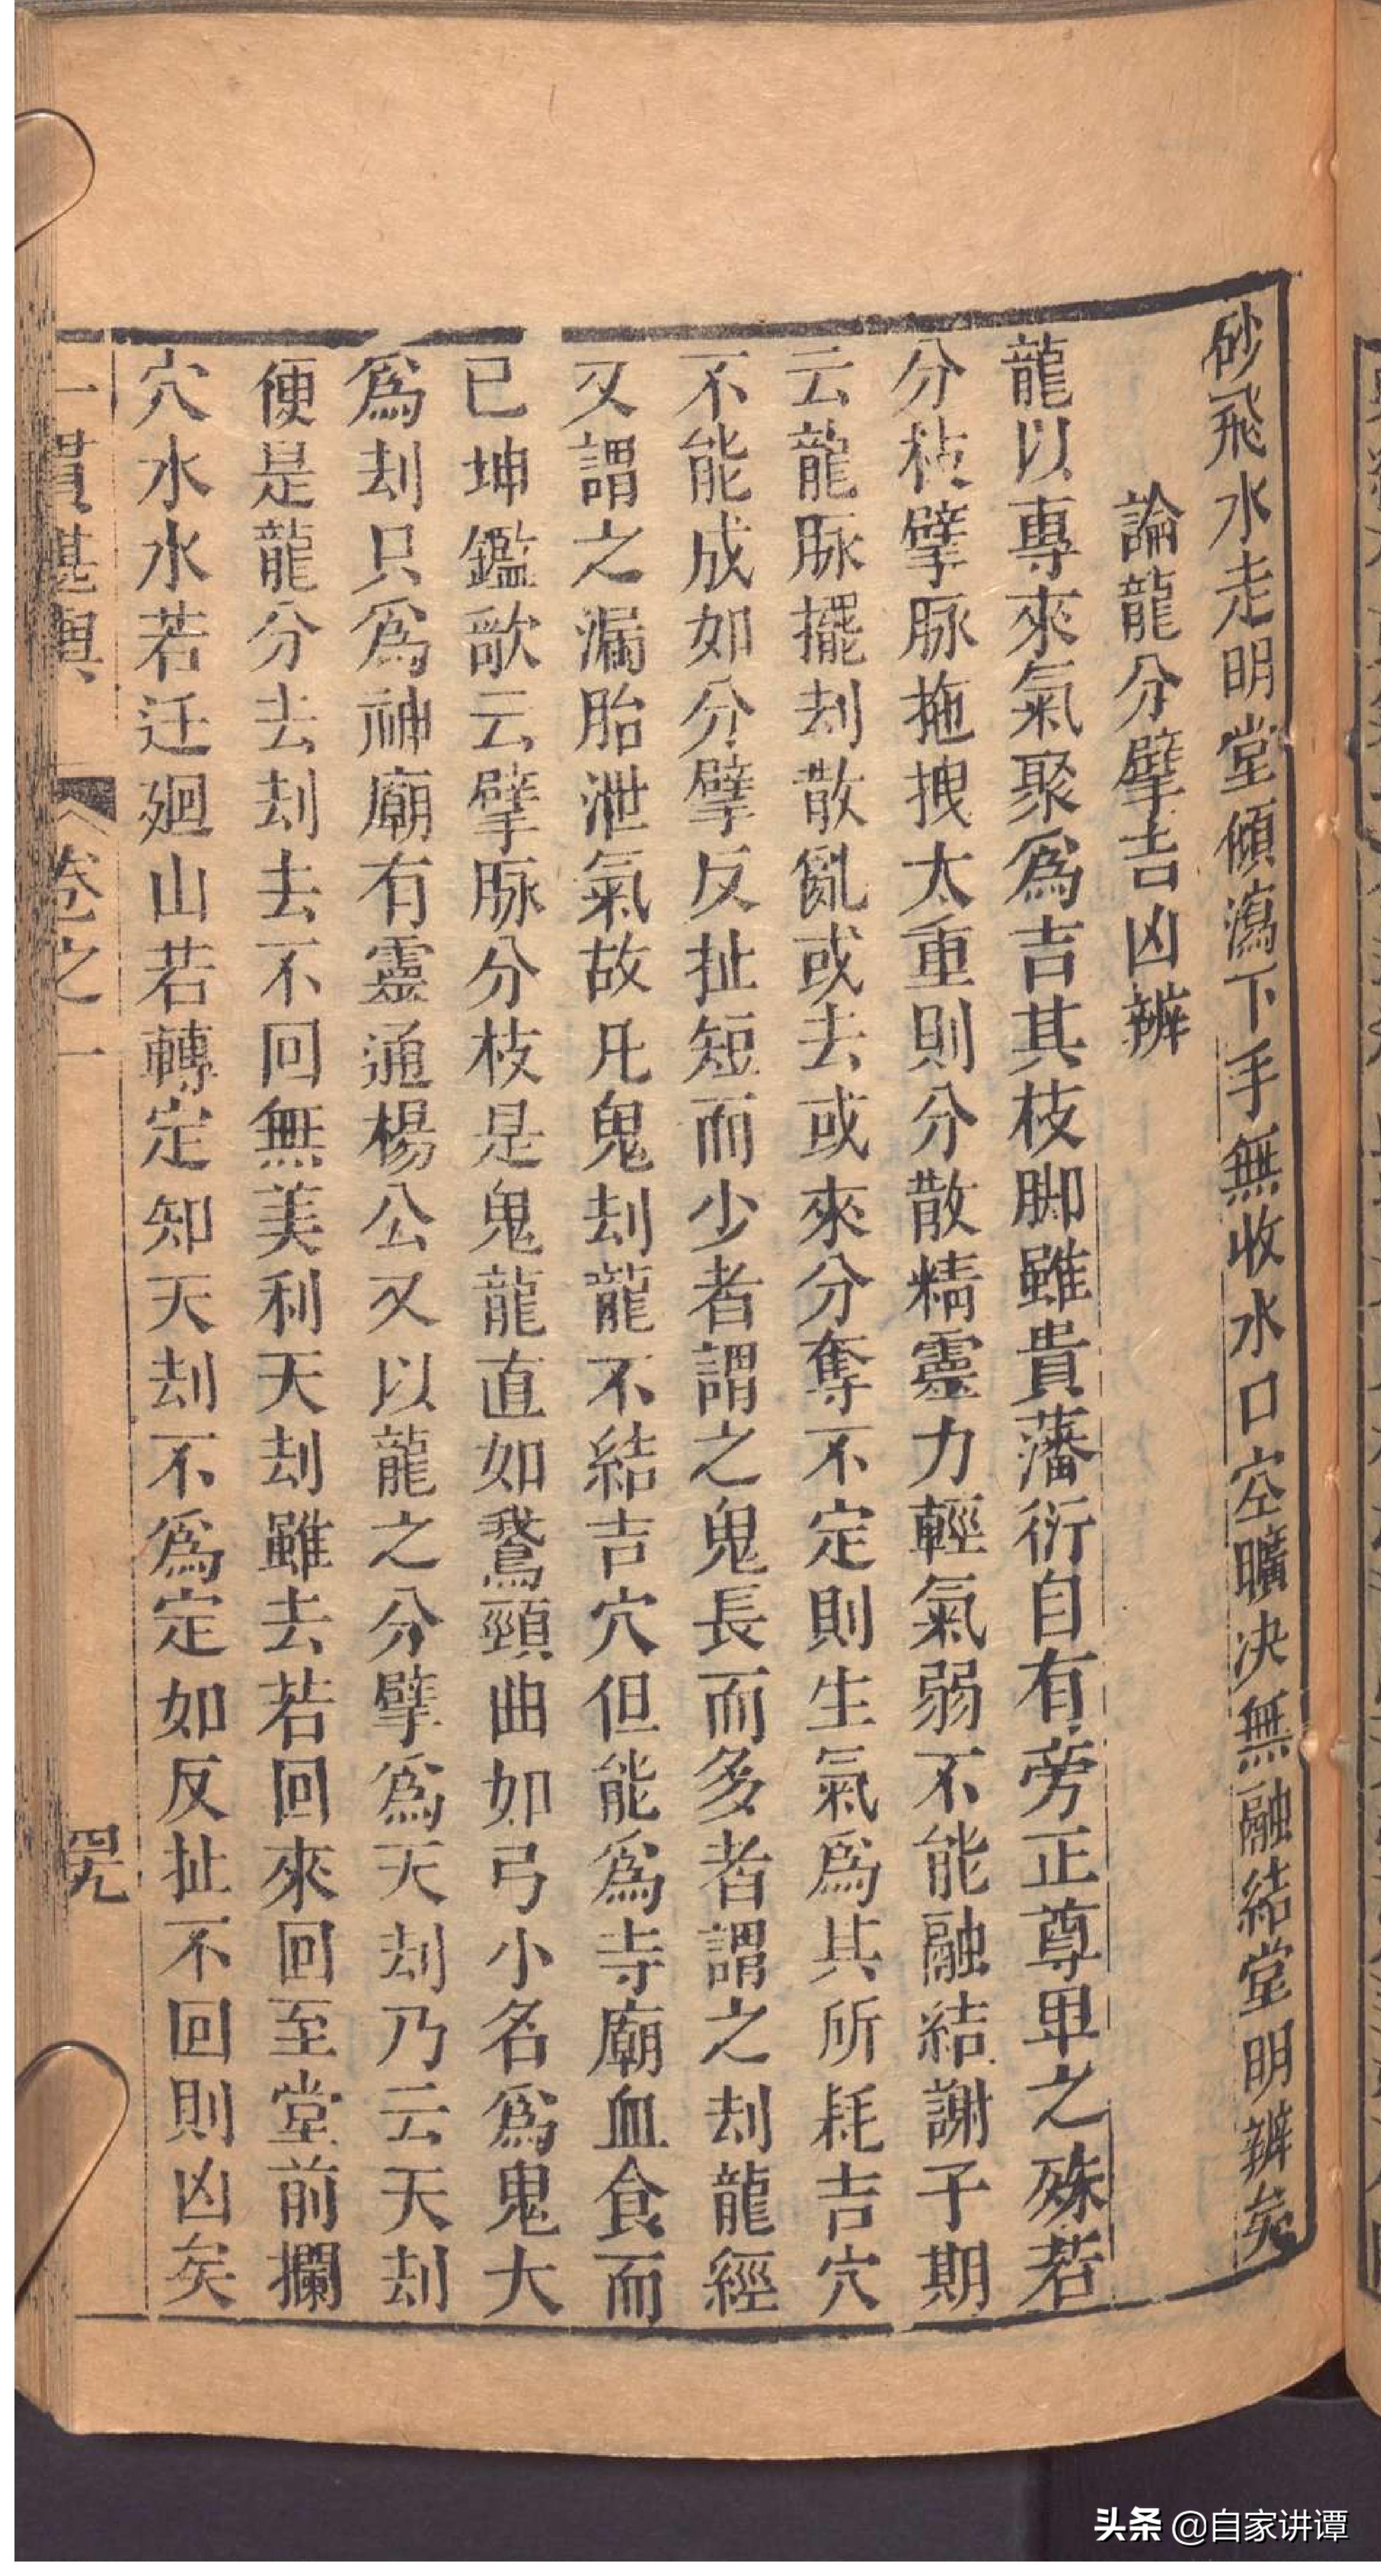 砂飛水走明堂傾瀉下手無收水口空曠决無融結堂明辨矣
論龍分擘吉凶辨
龍以專來氣聚爲吉其枝脚雖貴藩衍自有旁正尊卑之殊若
分枝擘脉拖拽太重則分散精靈力輕氣弱不能融結謝子期
云龍脉擺刦散亂或去或來分奪不定則生氣爲其所耗吉穴
不能成如分擘反扯短而少者謂之鬼長而多者謂之刦龍經
又謂之漏胎泄氣故凡鬼刦龍不結吉穴但能爲寺廟血食而
已坤鑑歌云擘脉分枝是鬼龍直如鵞頸曲如弓小名爲鬼大
爲刦只爲神廟有靈通楊公又以龍之分擘爲天刦乃云天刦
便是龍分去刦去不回無美利天刦雖去若回來回至堂前攔
穴水水若迂廻山若轉定知天刦不爲定如反扯不回則凶矣
一貫堪輿
卷之一
四九
头条 @自家讲谭